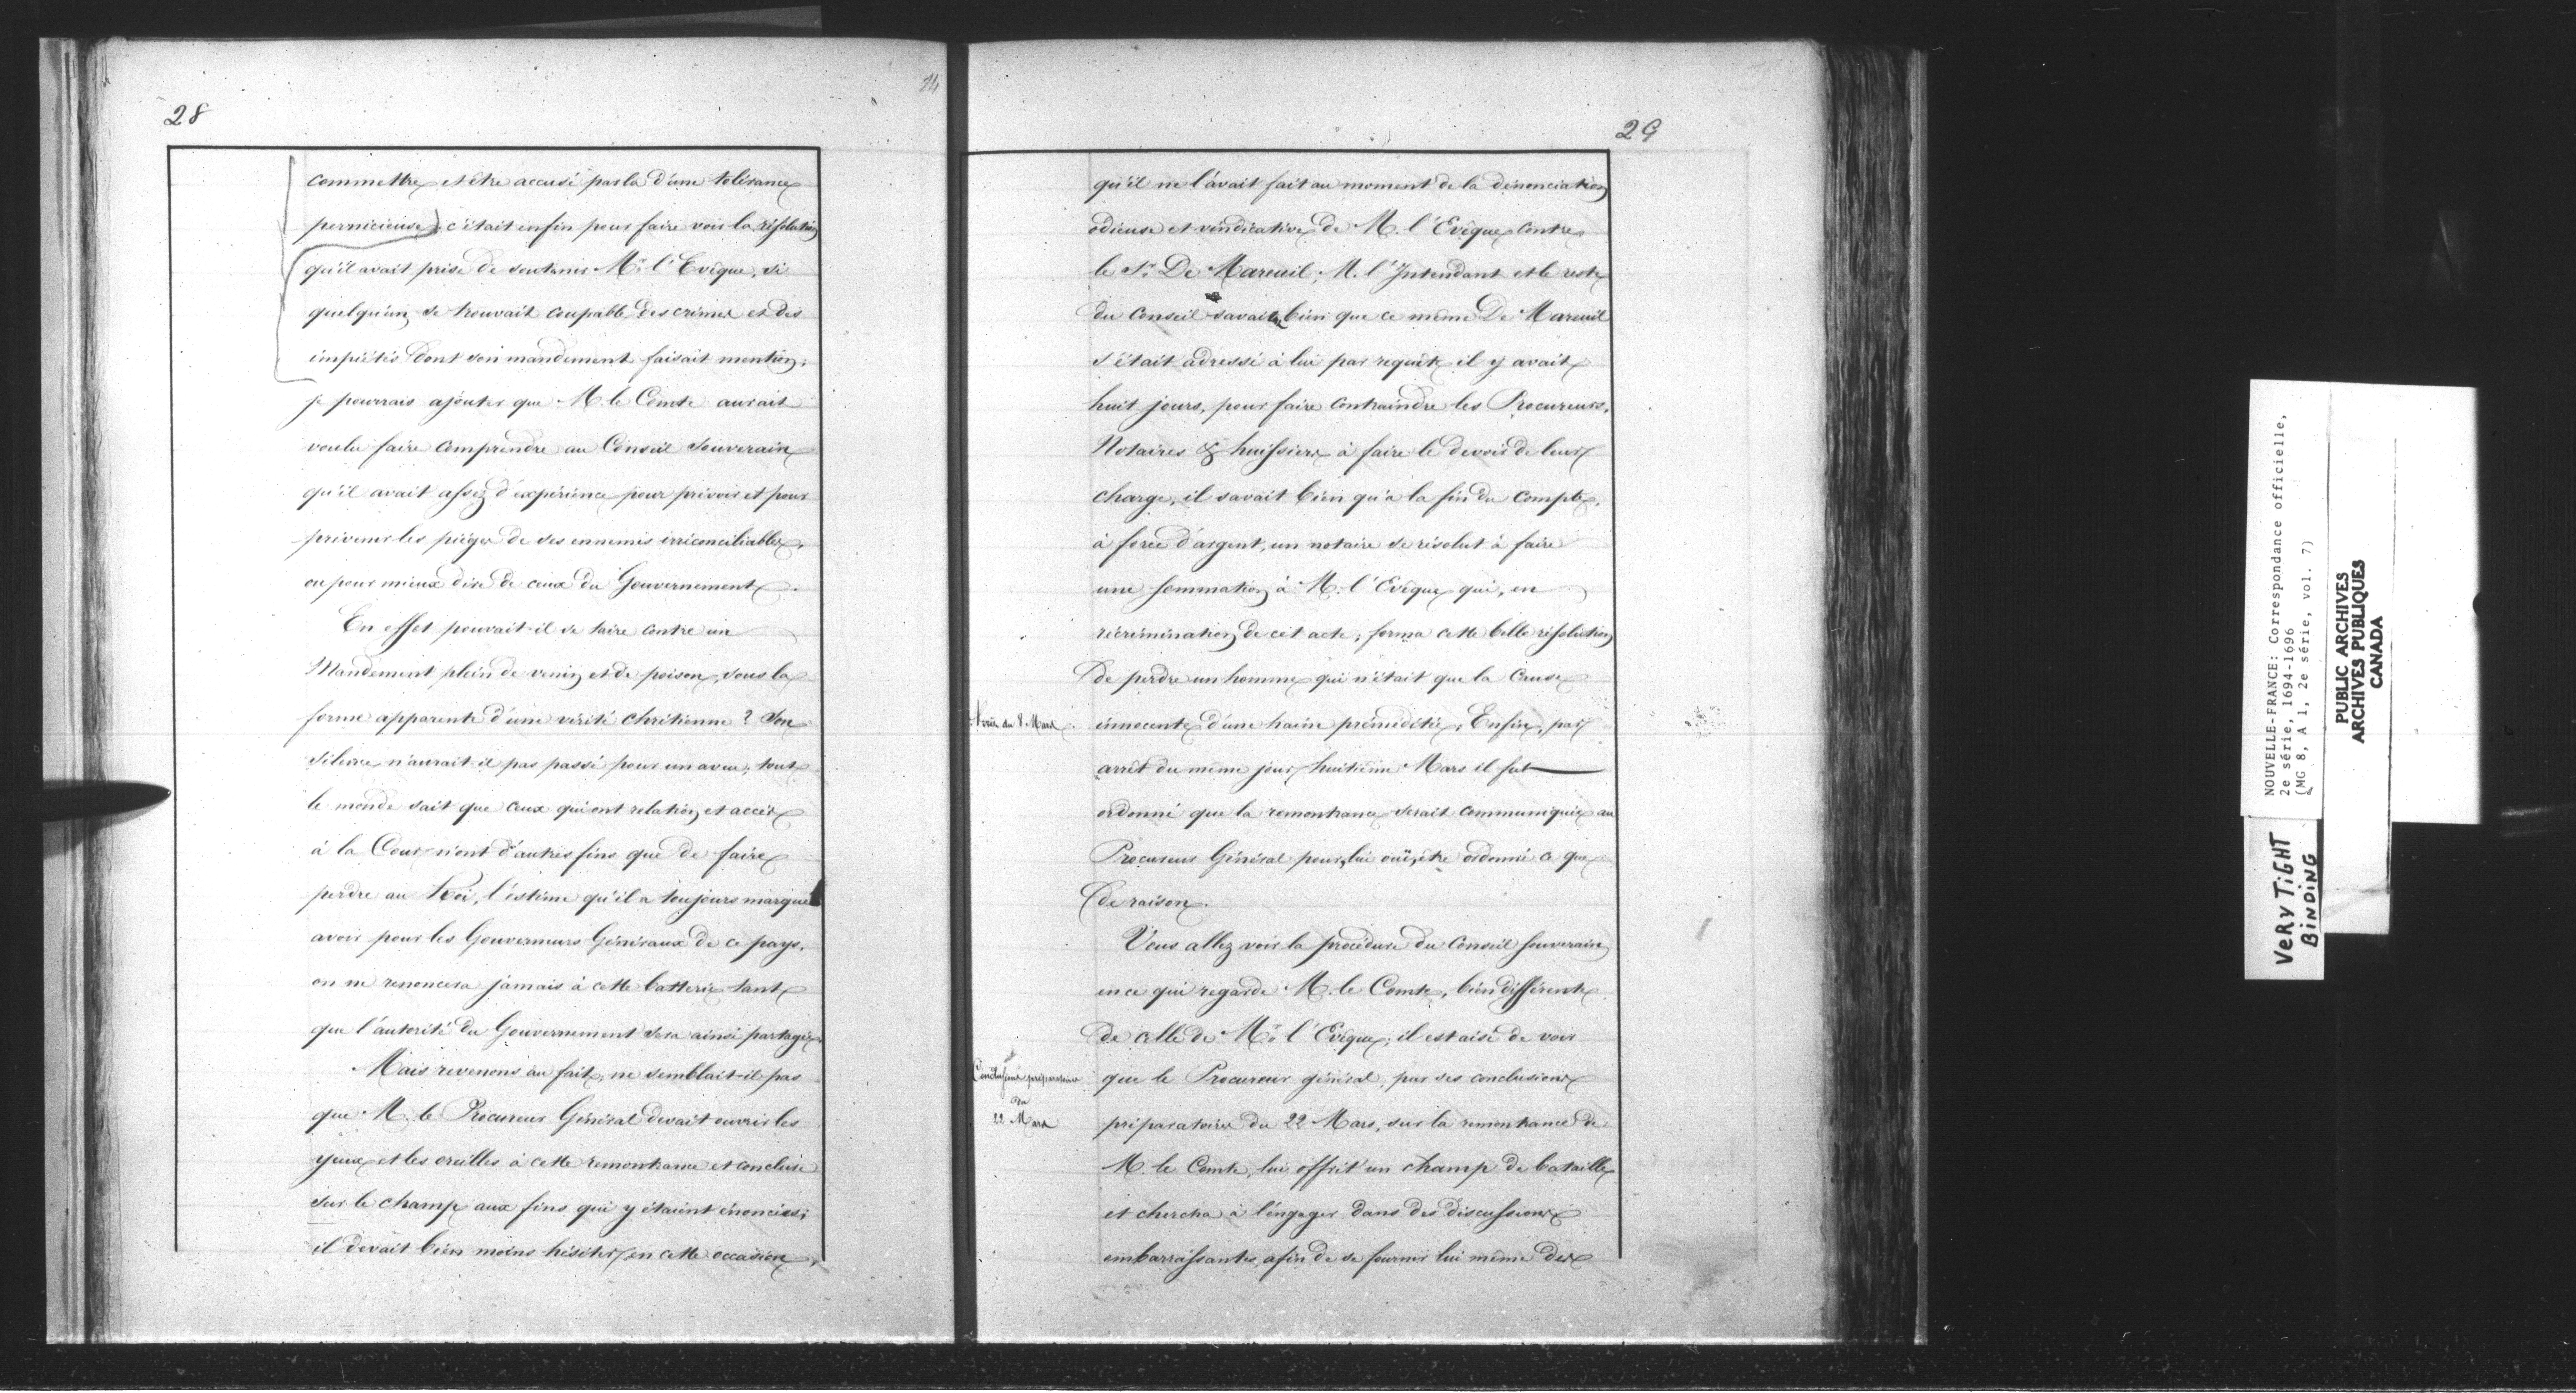 28
commettre et être accusé par là d'une tolérance
pernicieuse) c'était enfin pour faire voir la résolution
qu'il avait prise de soutenir Mr. l'Evêque, si
quelqu'un se trouvait coupable des crimes et des
impiétés dont son mandement faisait mention;
je pourrais ajouter que M. le Comte aurait
voulu faire comprendre au Conseil Souverain
qu'il avait assez d'expérience pour prévoir et pour
prévenir les pièges de ses ennemis irréconciliables,
ou pour mieux dire de ceux du Gouvernement.
En effet pouvait-il se taire contre un
Mandement plein de venin et de poison, sous la
forme apparente d'une vérité chrétienne? Son
silence n'aurait-il pas passé pour un aveu; tout
le monde sait que ceux qui ont relation et accès
à la Cour n'ont d'autres fins que de faire
perdre au Roi, l'estime qu'il a toujours marqué
avoir pour les Gouverneurs Généraux de ce pays,
on ne renoncera jamais à cette batterie tant
que l'autorité du Gouvernement sera ainsi partagée
Mais revenons au fait, ne semblait-il pas
que M. le Procureur Général devait ouvrir les
yeux et les oreilles à cette remontrance et conclure
sur le champ aux fins qui y étaient énoncées;
il devait bien moins hésiter en cette occasion,
29
qu'il ne l'avait fait au moment de la dénonciation
odieuse et vindicative de M. l'Evêque contre
le Sr. De Mareuil; M. l'Intendant et le reste
du Conseil savait bien que ce même De Mareuil
s'était adressé à lui par requête il y avait
huit jours, pour faire contraindre les Procureurs,
Notaires & huissiers à faire le devoir de leur
charge, il savait bien qu'à la fin du compte,
à force d'argent, un notaire se résolut à faire
une sommation à M. l'Evêque qui, en
récrimination de cet acte, forma cette belle résolution
de perdre un homme qui n'était que la cause
du 8 Mars
innocente d'une haine préméditée; Enfin, par
arrêt du même jour huitième Mars il fut
ordonné que la remontrance serait communiquée au
Procureur Général pour, lui ouï, être ordonné ce que
de raison.
Vous allez voir la procédure du Conseil souverain
en ce qui regarde M. le Comte, bien différente
de celle de Mr. l'Evêque; il est aisé de voir
Conclusions préparatoires
du
22 Mars
que le Procureur général, par ses conclusions
préparatoires du 22 Mars, sur la remontrance de
M. le Comte, lui offrit un champ de bataille
et chercha à l'engager dans des discussions
embarrassantes, afin de se fournir lui même des
NOUVELLE-FRANCE: Correspondance officielle,
2e série, 1694-1696
(MG 8, A 1, 2e série, vol. 7)
PUBLIC ARCHIVES
ARCHIVES PUBLIQUES
CANADA
VERY TIGHT
BINDING